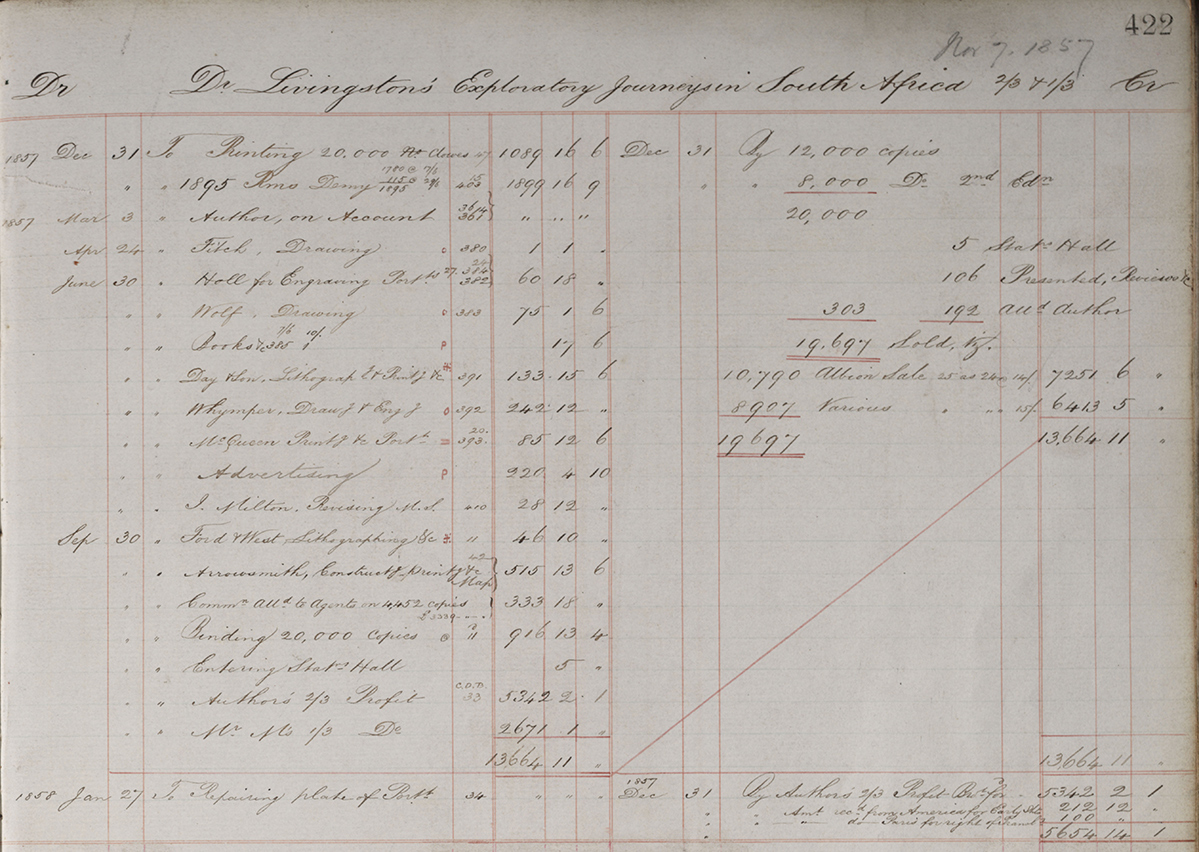 422
Nov 7. 1857
Dr Dr Livingston's Exploratory Journeys in South Africa 2/3 & 1/3 Cr
1857 Dec 31 To Printing 20,000 Clowes 47 1089 16 6 Dec 31 By 12,000 copies
" " 1895 Rms Demy 403 1899 16 9 " " 8,000 Do 2nd Edn
1857 Mar 3 " Author, on Account 361 " " " 20,000
Apr 24 " Fitch, Drawing 380 1 1 " 5 Statrs Hall
June 30 " Holl for Engraving Portts 27. 382 60 18 " 106 Presented, Reviews &c
" " Wolf, Drawing 383 75 1 6 303 192 Alld Author
" " Books &c 385 7/6 10/. 17 6 19,697 Sold, Viz.
" " Day & Son, Lithograph & Printg &c 391 133 15 6 10,790 Albion Sale 25 as 24 @ 14/ 7251 6 "
" " Whymper, Drawg & Engg 392 242 12 " 8907 Various " " " 15/ 6413 5 "
" " McQueen Printg &c Portt 20. 393 85 12 6 19697 13,664 11 "
" " Advertising 220 4 10
" " J. Milton, Revising M.S. 410 28 12 "
Sep 30 " Ford & West Lithographing &c " 46 10 "
" " Arrowsmith, Constructg Printg &c Map 42 515 13 6
" " Commn Alld to Agents on 4,452 copies 333 18 "
" " Binding 20,000 Copies " 916 13 4
" " Entering Statrs Hall 5 "
" " Author's 2/3 Profit C.D.D. 33 5342 2 1
" " Mr M's 1/3 Do 2671 1 "
13,664 11 " 13,664 11 "
1858 Jan 27 To Repairing plate of Portt 34 " " " 1857 Dec 31 By Author's 2/3 Profit Brot for 5342 2 1
" " Amt recd from America for Early Sht 212 12 "
" " do Paris for right of Transl 100 " "
5654 14 1